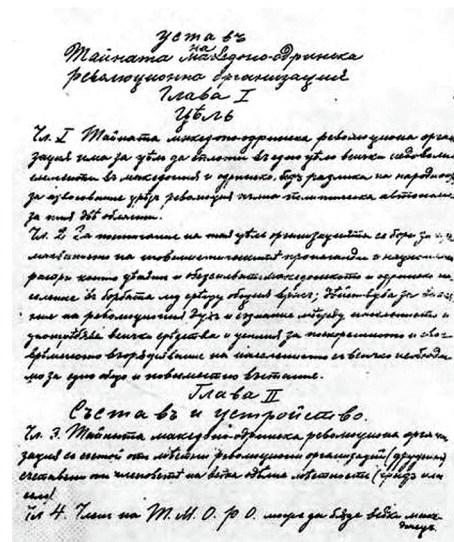 Уставъ
на
Тайната македоно-одринска
революционна организация
Глава I
Цѣль
Чл. I Тайната македоно-одринска революциона орга-
зация има за цѣль да сплоти въ едно цѣло всички недоволни
елементи въ Македония и Одринско, безъ разлика на народнос
за извоювание чрѣзъ революция пълна политическа автономи
за тия двѣ области.
Чл. 2 За постигание на тая цѣль организацията се бори за
махванието на шовенистическитѣ пропаганди и национални
распри които цѣпятъ и обезсилватъ македонското и одринско на
селение въ борбата му срѣщу общия врагъ; дѣйствува за
ние на революционния духъ и съзнание между населението и
употрѣбява всички срѣдства и усилия за покрѫжението и
врѣменното въорѫжавание на населението съ всичко необходи
мо за едно общо и повсемѣстно въстание.
Глава II
Съставъ и устройство.
Чл. 3. Тайната македоно-одринска революциона органи
зация се състои отъ мѣстни революциони организации (дружини)
съставени отъ членоветѣ на всѣка отдѣлна мѣстность (градъ или
село)
Чл 4. Членъ на Т. М. О. Р. О. може да бѫде всѣки мак-
донецъ.